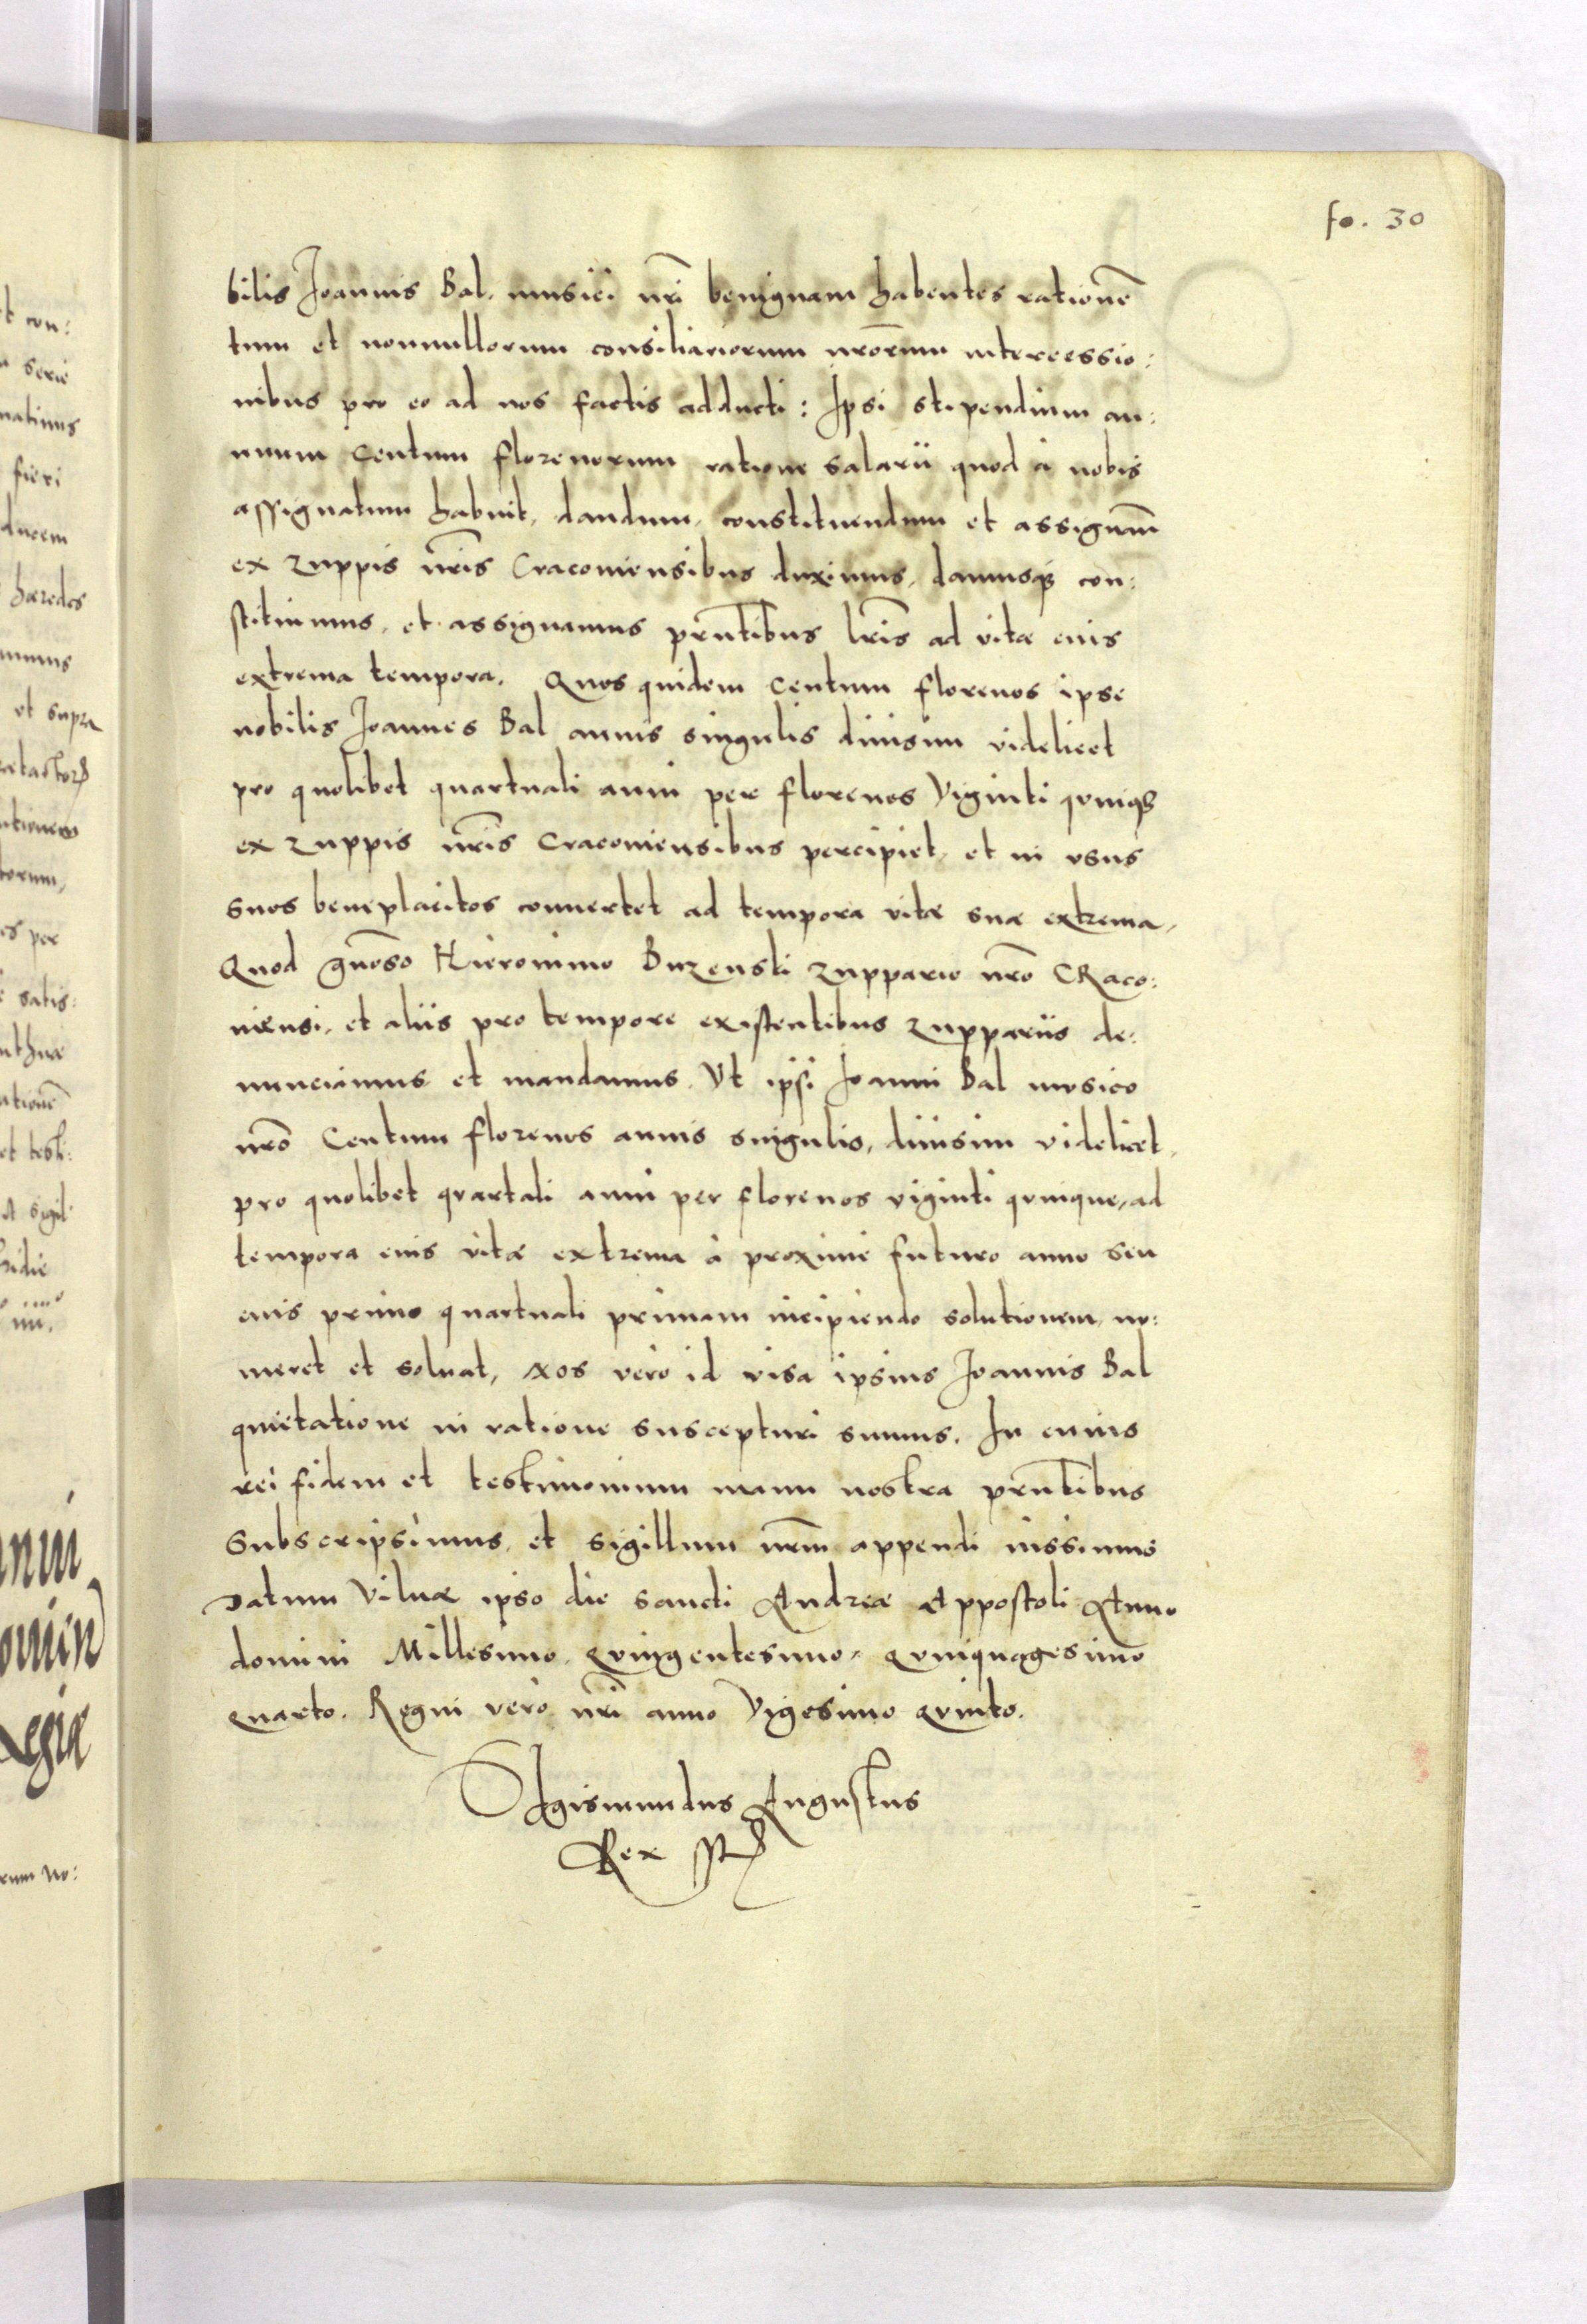 fo. 30
bilis Joannis Bal, musici nrĩ benignam habentes rationẽ
tum et nonnullorum consiliariorum nrõrum intercessio:
nibus pro eo ad nos factis adducti: Ipsi stipendium an:
nuum Centum florenorum ratione salarii quod à nobis
assignatum habuit, dandum, constituendum et assignam̃
ex zuppis nrĩs Cracoviensibus duximus, damusq3 con:
stituimus, et assignamus prñtibus lrĩs ad vitæ eius
extrema tempora. Quos quidem Centum florenos ipse
nobilis Joannes Bal annis singulis diuisim videlicet
pro quolibet quartuali anni per florenos Viginti quinq3
ex zuppis nrĩs Cracouiensibus percipiet, et in vsus
suos beneplacitos conuertet ad tempora vitæ suæ extrema,
Quod gnõso Hieronimo Buzenski zuppario nrõ CRaco:
niensi, et aliis pro tempore existentibus zuppariis de:
nunciamus et mandamus, Vt ipsi Joanni Bal musico
nrõ Centum florenos annis singulis, diuisim videlicet,
pro quolibet quartali anni per florenos viginti quinque, ad
tempora eius vitæ extrema à proxime futuro anno seu
eius primo quartuali primam incipiendo solutionem, nu:
meret et soluat, Nos vero id visa ipsius Joannis Bal
quietatione in ratione suscepturi sumus. In cuius
rei fidem et testimonium manu nostra prñtibus
subscripsimus, et sigillum nrm̃ appendi iussimus
Datum Vilnæ ipso die sancti Andreæ Appostoli Anno
domini Millesimo, Quingentesimo, Quinquagesimo
quarto. Regni vero nrĩ anno Vigesimo Quinto.
Sigismundus Augustus
Rex sst